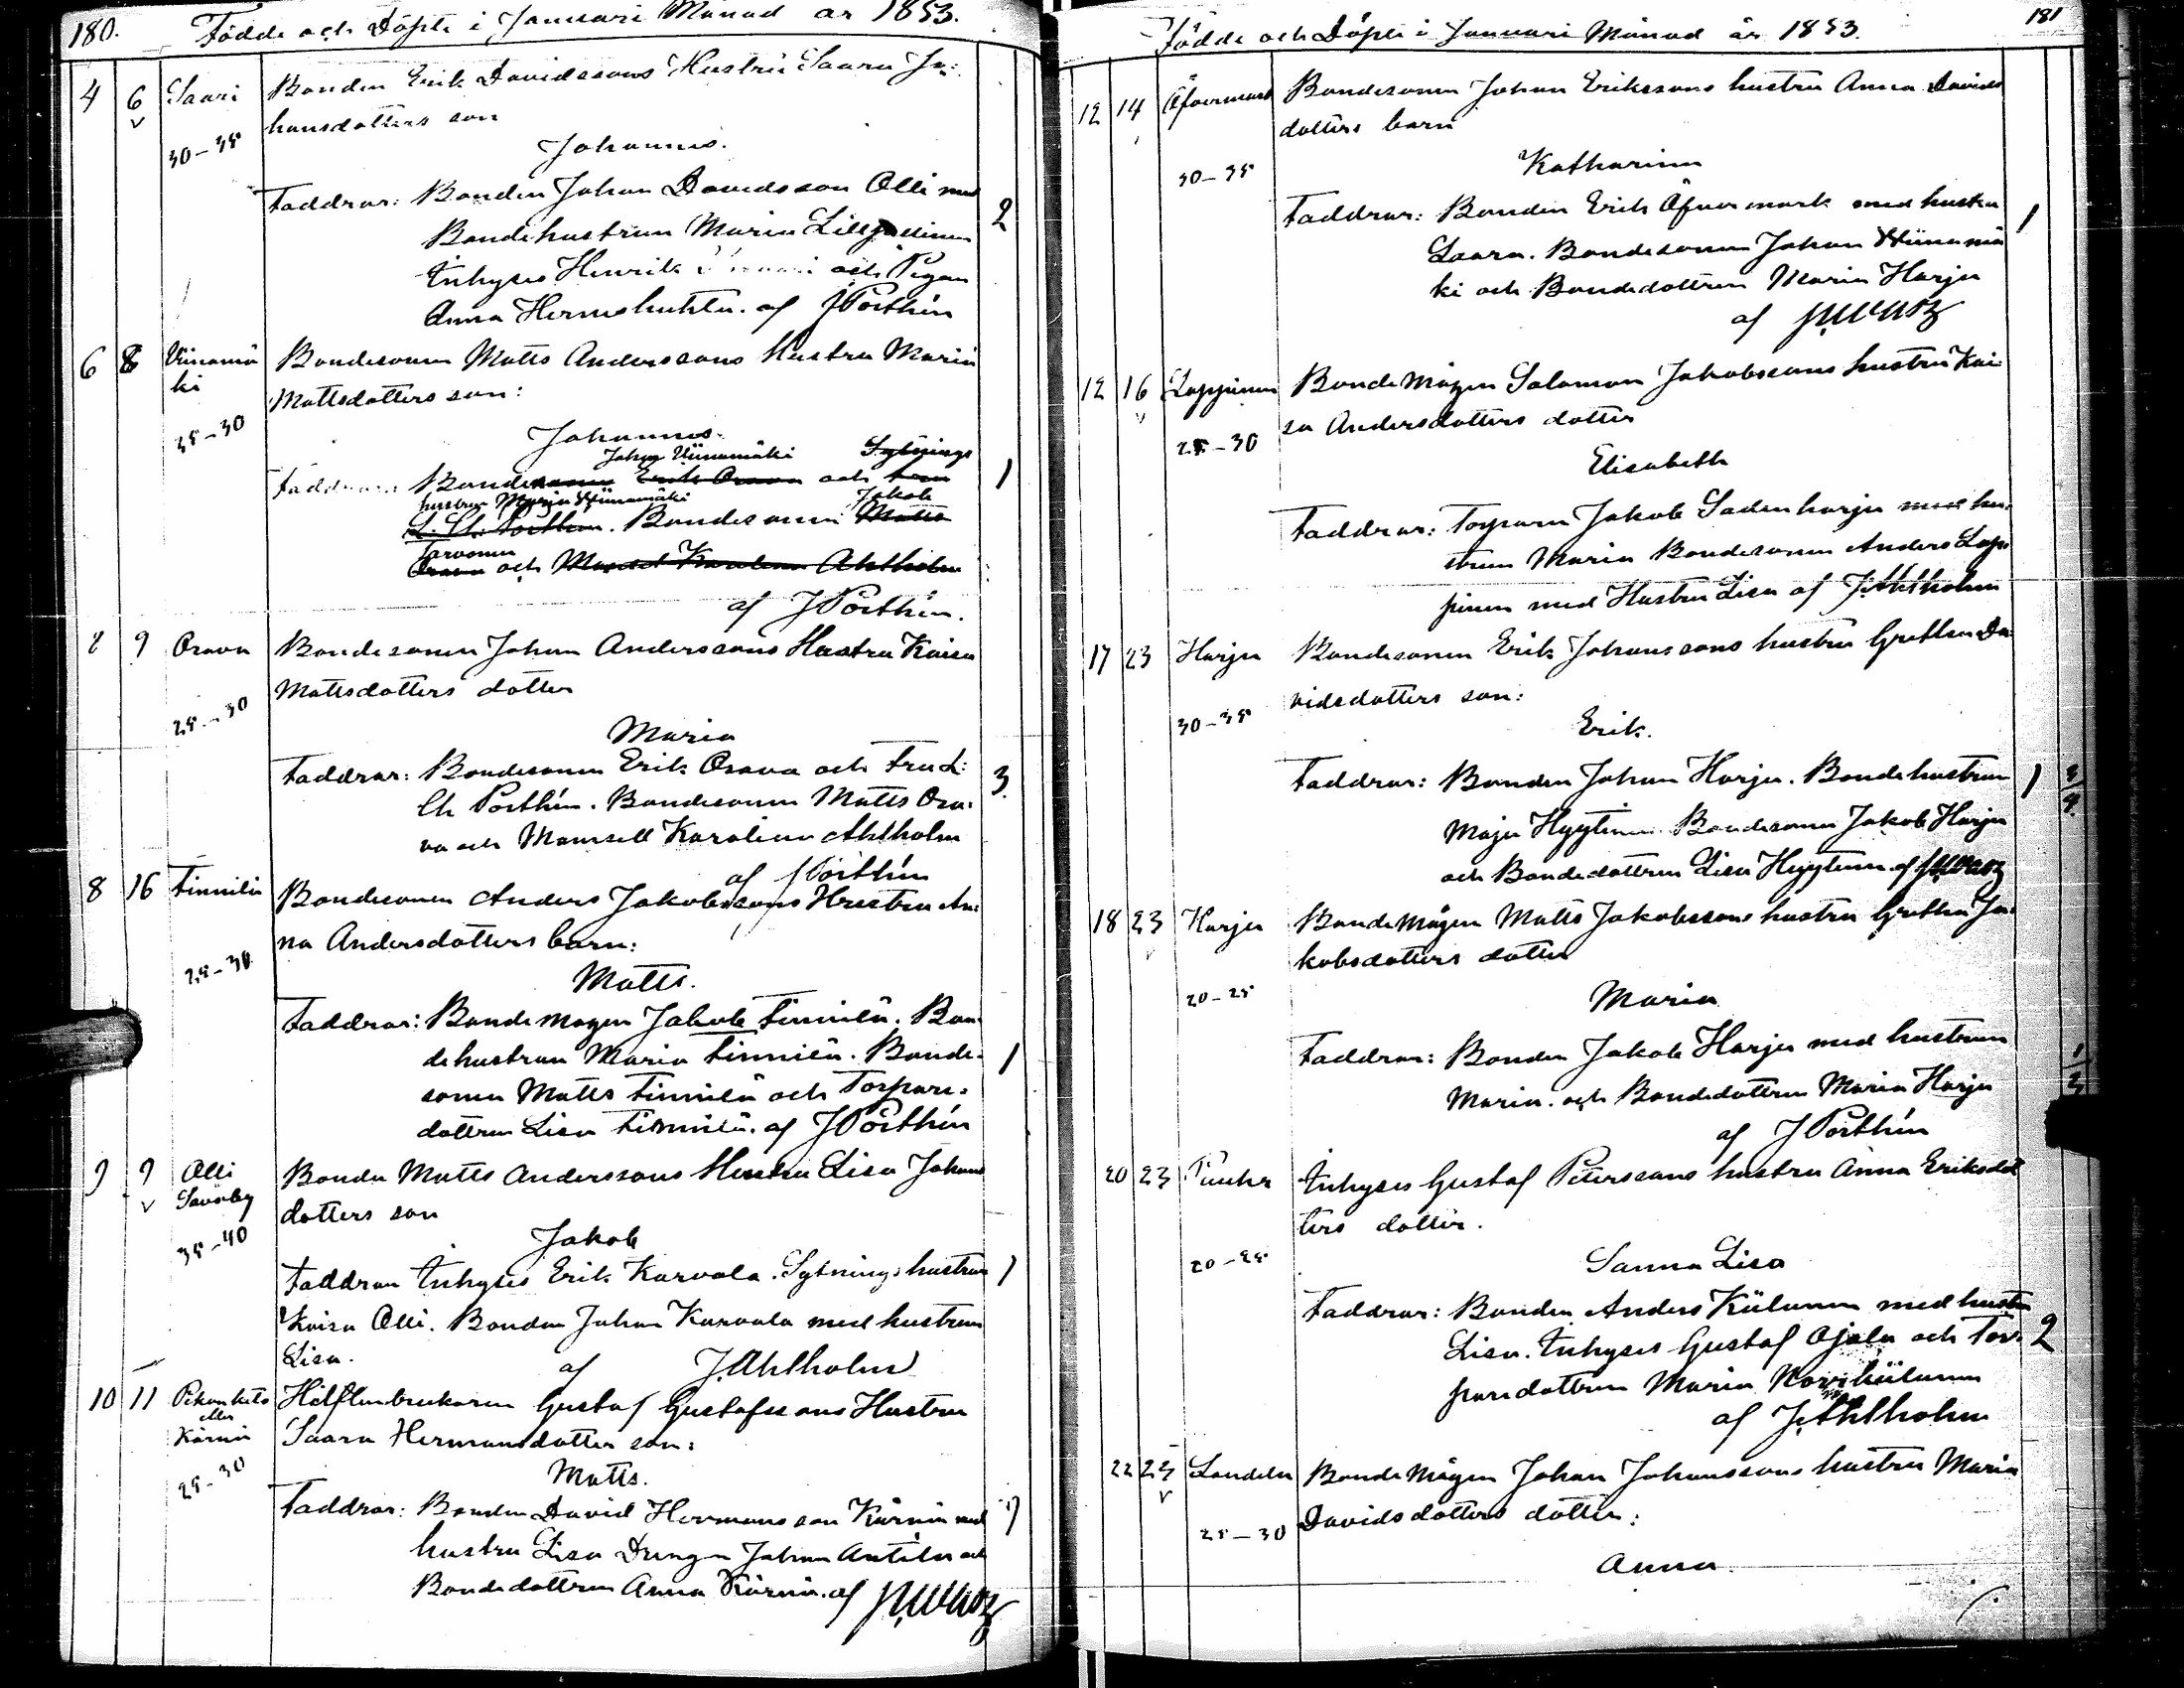 180. Födde och Döpte i Januari Månad år 1853.
4 6 Saari Bonden Erik Davidssons Hustru Saara Jo:
hansdotters son
30-35 Johannes.
Faddrar: Bonden Johan Davidsson Olli med 2
Bondehustrun Maria
Inhyses Henrik och Pigan
Anna af JPorthén
6 8 Viinamä Bondesonen Matts Anderssons Hustru Maria
ki Mattsdotters son:
25-30 Johannes.
Johan Viinamäki Sytnings
Faddrar: Bondesonen Erik Orava och Fru 1
hustrun Maria Viinamäki Jakob
L. Ch. Porthen. Bondesonen Matts
Tarvonen
Orava och Mamsell Karolina Ahlholm
af JPorthén.
8 9 Orava Bondesonen Johan Anderssons Hustru Kaisa
Mattsdotters dotter
25-30 Maria
Faddrar: Bondesonen Erik Orava och Fru L: 3.
Ch Porthén. Bondesonen Matts Ora:
va och Mamsell Karolina Ahlholm
af JPorthén
8 16 Finnilä Bondesonen Anders Jakobssons Hustru An:
na Andersdotters barn:
25-30 Matts.
Faddrar: Bondemågen Jakob Finnilä. Bon
dehustrun Maria Finnilä. Bonde= 1
sonen Matts Finnilä och Torpare=
dottren Lisa Finnilä. af JPorthén
9 9 Olli Bonden Matts Anderssons Hustru Lisa Johans
Savoby dotters son
35-40 Jakob
Faddrar Inhyses Erik Karvala. Sytningshustrun 1
Kaisa Olli. Bonden Johan Karvala med hustrun
Lisa. af J.Ahlholm
10 11 Hälftenbrukaren Gustaf Gustafssons Hustru
eller
Kärnä Saara Hermansdotter son:
25-30 Matts.
Faddrar: Bonden David Hermansson Kärnä med
hustru Lisa Drengen Johan Antila och
Bondedottren Anna Kärnä. af
181
Födde och Döpte i Januari Månad år 1853.
12 14 Åfvermark Bondesonen Johan Erikssons hustru Anna Davids
dotters barn
30-35 Katharina
Faddrar: Bonden Erik Åfvermark med hustru 1
Saara. Bondesonen Johan Viinamä
ki och Bondedottren Maria Harju
af
12 16 Lappinen Bondemågen Salomon Jakobssons hustru Kai=
sa Andersdotters dotter
25-30 Elisabeth
Faddrar: Torparen Jakob Sadenharju med hu=
strun Maria Bondesonen Anders Lap=
pinen med Hustru Lisa af J.Ahlholm
17 23 Harju Bondesonen Erik Johanssons hustru Gretha Da
vidsdotters son:
30-35 Erik.
Faddrar: Bonden Johan Harju. Bondehustrun 1
Maja Hyytinen Bondesonen Jakob Harju
och Bondedottren Lisa Hyytinen af
18 23 Harju Bondemågen Matts Jakobssons hustru Gretha Ja=
kobsdotters dotter
20-25 Maria
Faddrar: Bonden Jakob Harju med hustrun
Maria. och Bondedottren Maria Harju
af JPorthén
20 23 Inhyses Gustaf Peterssons hustru Anna Eriksdot
ters dotter.
20-25 Sanna Lisa
Faddrar: Bonden Anders Kiilunen med hustru
Lisa. Inhyses Gustaf Ojala och Tor= 2
paredottren Maria Norrkiilunen
af J.Ahlholm
22 23 Sandelin Bondemågen Johan Johanssons hustru Maria
Davidsdotters dotter:
25-30
Anna.